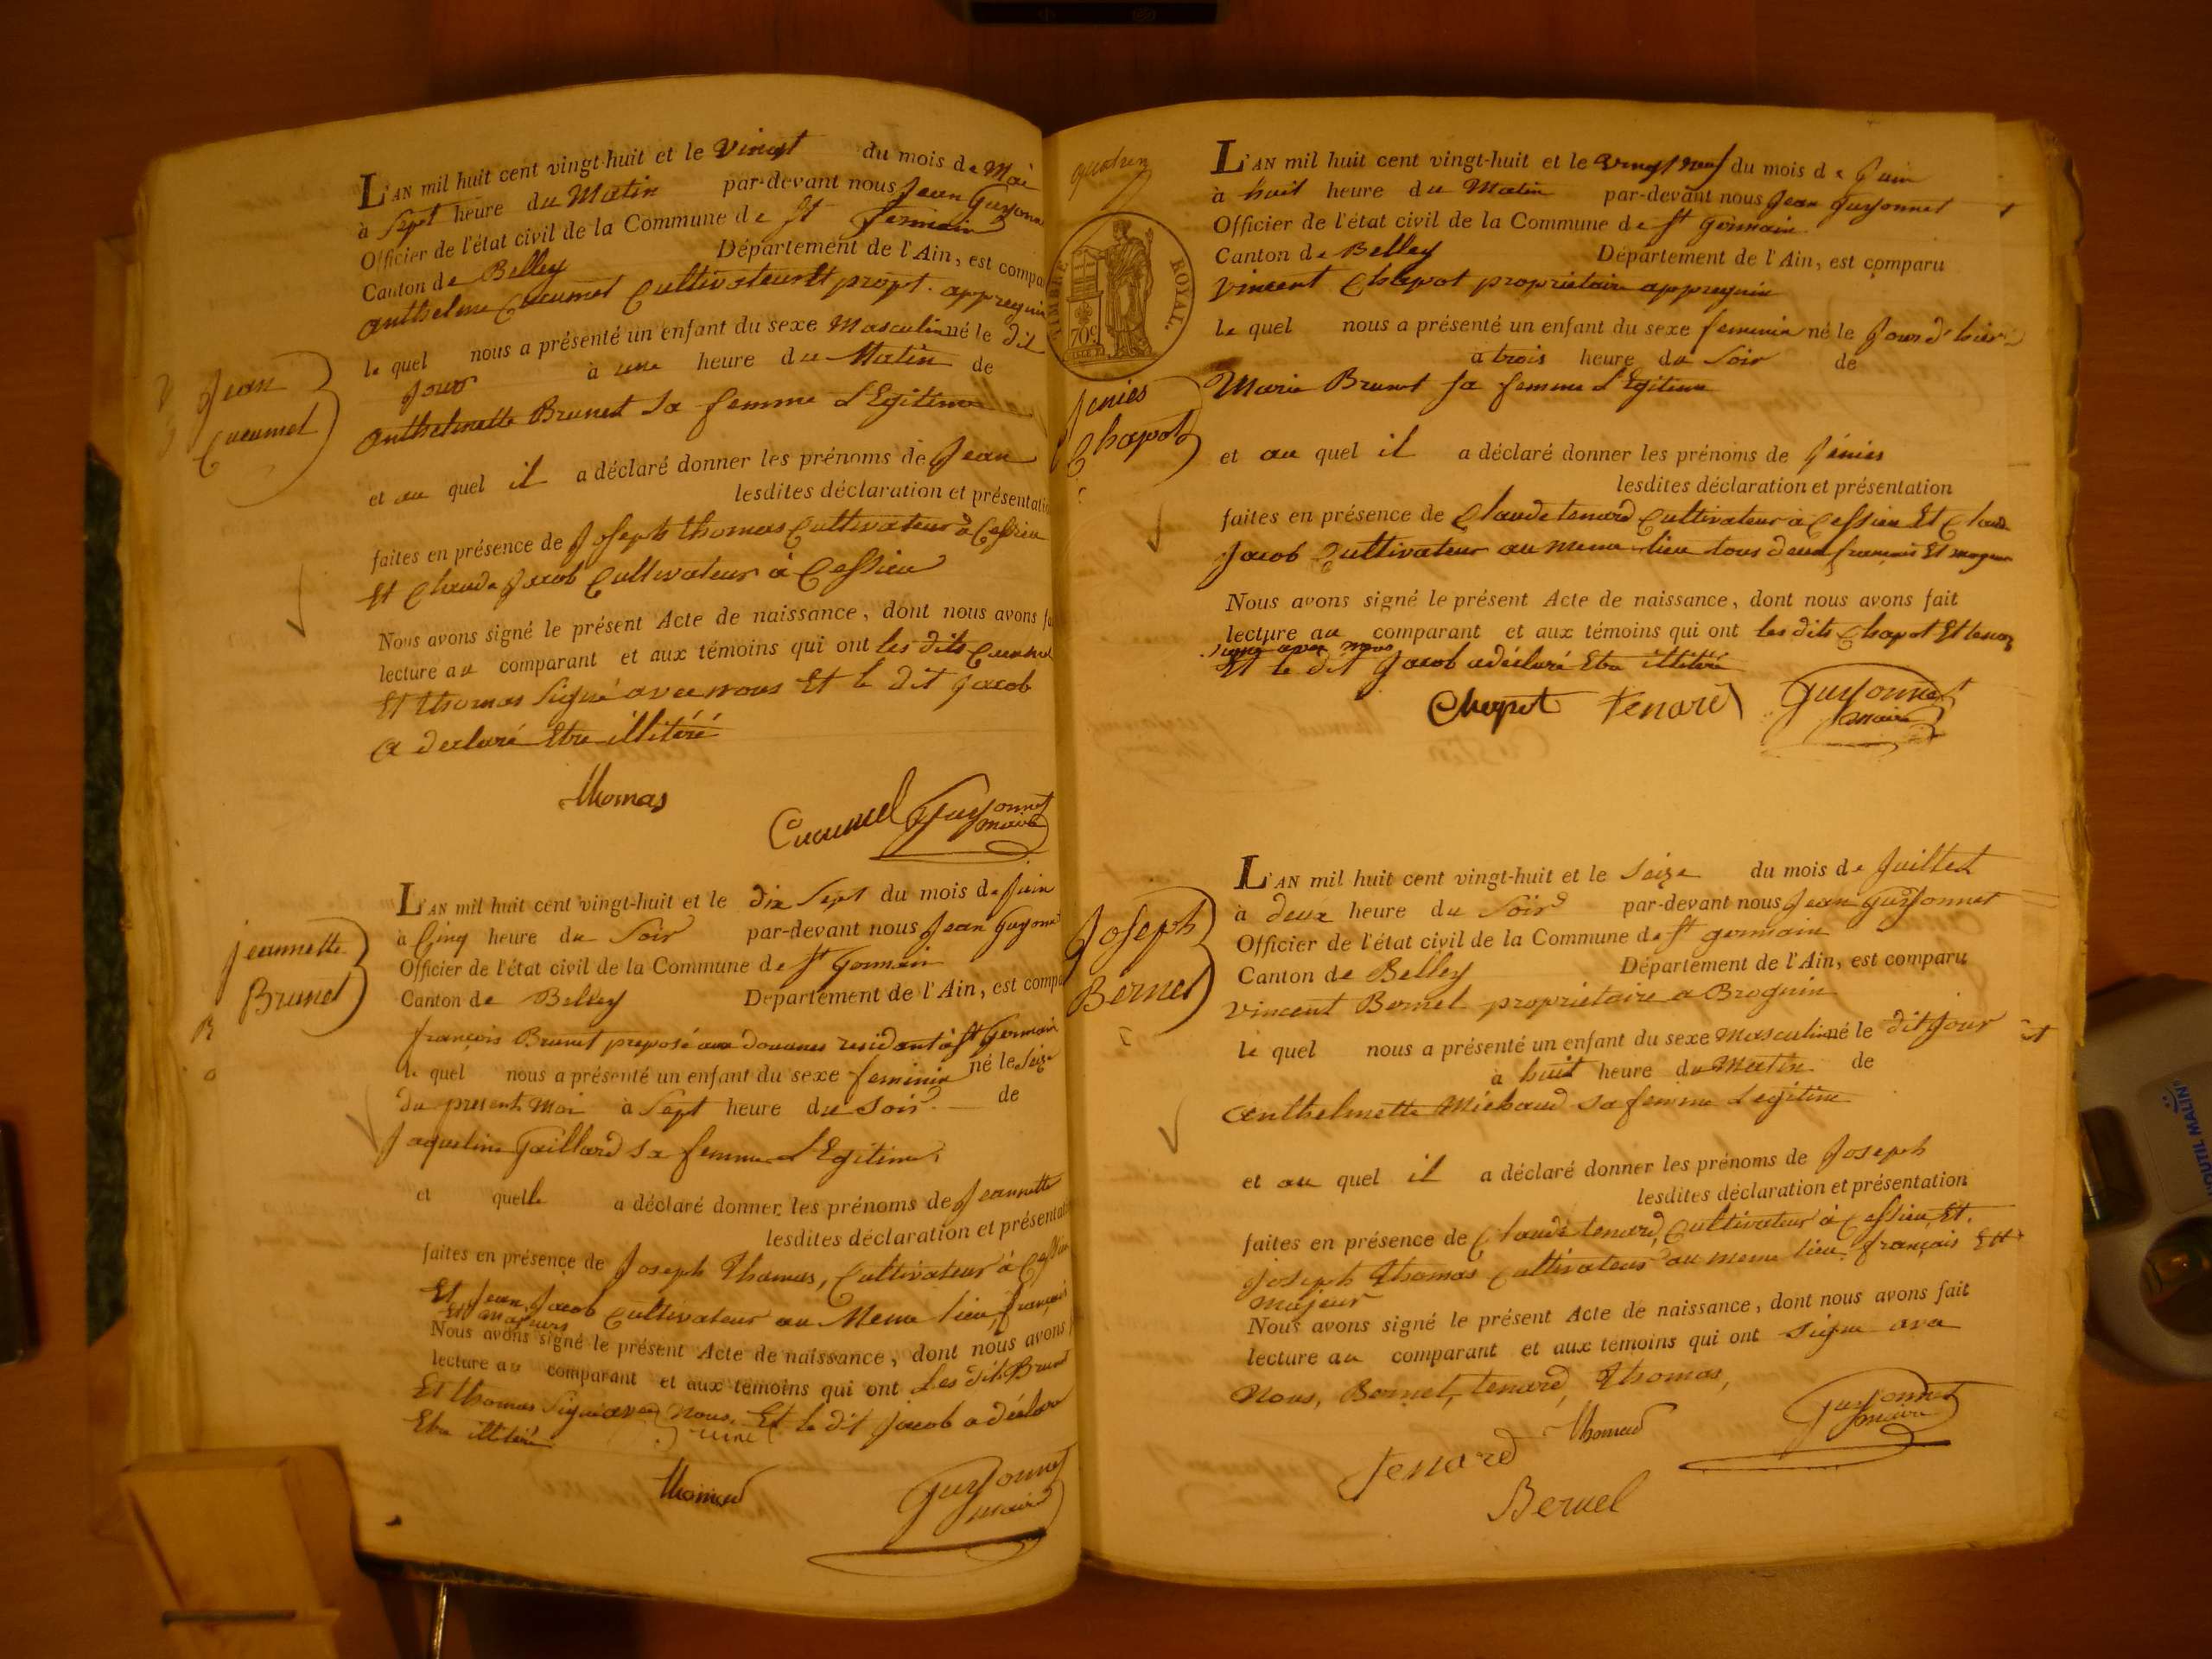 Jean
Cucumel
L'AN mil huit cent vingt-huit et le vingt du mois de Mai
à Sept heure du Matin par-devant nous Jean Guyonn
Officier de l'état civil de la Commune de St Germain
Canton de Belley Département de l'Ain, est compa
anthelme Cucumel Cultivateur Et propt. appregnin
le quel nous a présenté un enfant du sexe Masculin né le dit
Jour à une heure du Matin de
anthelmette Brunet sa femme L'Egitime
et au quel il a déclaré donner les prénoms de Jean
lesdites déclaration et présentati
faites en présence de Joseph thomas Cultivateur à Cessieu
Et Claude Jacob Cultivateur à Cessieu
Nous avons signé le présent Acte de naissance, dont nous avons fa
lecture au comparant et aux témoins qui ont les dits Cucumel
Et thomas Signé avec nous Et le dit Jacob
a declaré Etre illitéré
thomas
Cucumel Guyonnet
maire
Jeannette
Brunet
L'AN mil huit cent vingt-huit et le dix Sept du mois de Juin
à Cinq heure du Soir par-devant nous Jean Guyonne
Officier de l'état civil de la Commune de St Germain
Canton de Belley Département de l'Ain, est compa
françois Brunet preposé aux douanes residant à St Germain
le quel nous a présenté un enfant du sexe feminin né le Seize
du present Moi à Sept heure du Soir de
Jaqueline Gaillard sa femme L'Egitime
et quelle a déclaré donner les prénoms de Jeannette
lesdites déclaration et présentati
faites en présence de Joseph Thomas, Cultivateur à Cessieu
Et Jean Jacob Cultivateur au Meme lieu, français
Et majeurs
Nous avons signé le présent Acte de naissance, dont nous avons
lecture au comparant et aux témoins qui ont Les dits Brunet
Et thomas Signé avec nous, Et le dit Jacob a déclaré
Etre illitéré
thomas
Guyonnet
maire
TIMBRE ROYAL.
70c
Jenies
Chapot
L'AN mil huit cent vingt-huit et le vingt neuf du mois de Juin
à huit heure du Matin par-devant nous Jean Guyonnet
Officier de l'état civil de la Commune de St Germain
Canton de Belley Département de l'Ain, est comparu
vincent Chapot propriétaire appregnin
le quel nous a présenté un enfant du sexe feminin né le Jour d'hier
à trois heure du Soir de
Marie Brunet sa femme L'Egitime
et au quel il a déclaré donner les prénoms de Jénies
lesdites déclaration et présentation
faites en présence de Claude tenard Cultivateur à Cessieu Et Claude
Jacob Cultivateur au meme lieu tous deux français Et majeur
Nous avons signé le présent Acte de naissance, dont nous avons fait
lecture au comparant et aux témoins qui ont les dits Chapot Et tenard
Signé avec nous
Et le dit Jacob a déclaré Etre illitéré
Chapot Tenard Guyonnet
maire
Joseph
Bernet
L'AN mil huit cent vingt-huit et le Seize du mois de Juillet
à deux heure du Soir par-devant nous Jean Guyonnet
Officier de l'état civil de la Commune de St germain
Canton de Belley Département de l'Ain, est comparu
vincent Bernet propriétaire a Brognin
le quel nous a présenté un enfant du sexe masculin né le dit Jour
à huit heure du Matin de
anthelmette Michaud sa femme Legitime
et au quel il a déclaré donner les prénoms de Joseph
lesdites déclaration et présentation
faites en présence de Claude tenard, Cultivateur à Cessieu, Et
Joseph Thomas Cultivateur au meme lieu français Et
majeur
Nous avons signé le présent Acte de naissance, dont nous avons fait
lecture au comparant et aux témoins qui ont Signé avec
Nous, Bernet, tenard, Thomas,
Tenard thomas Guyonnet
maire
Bernel
L'OUTIL MALIN